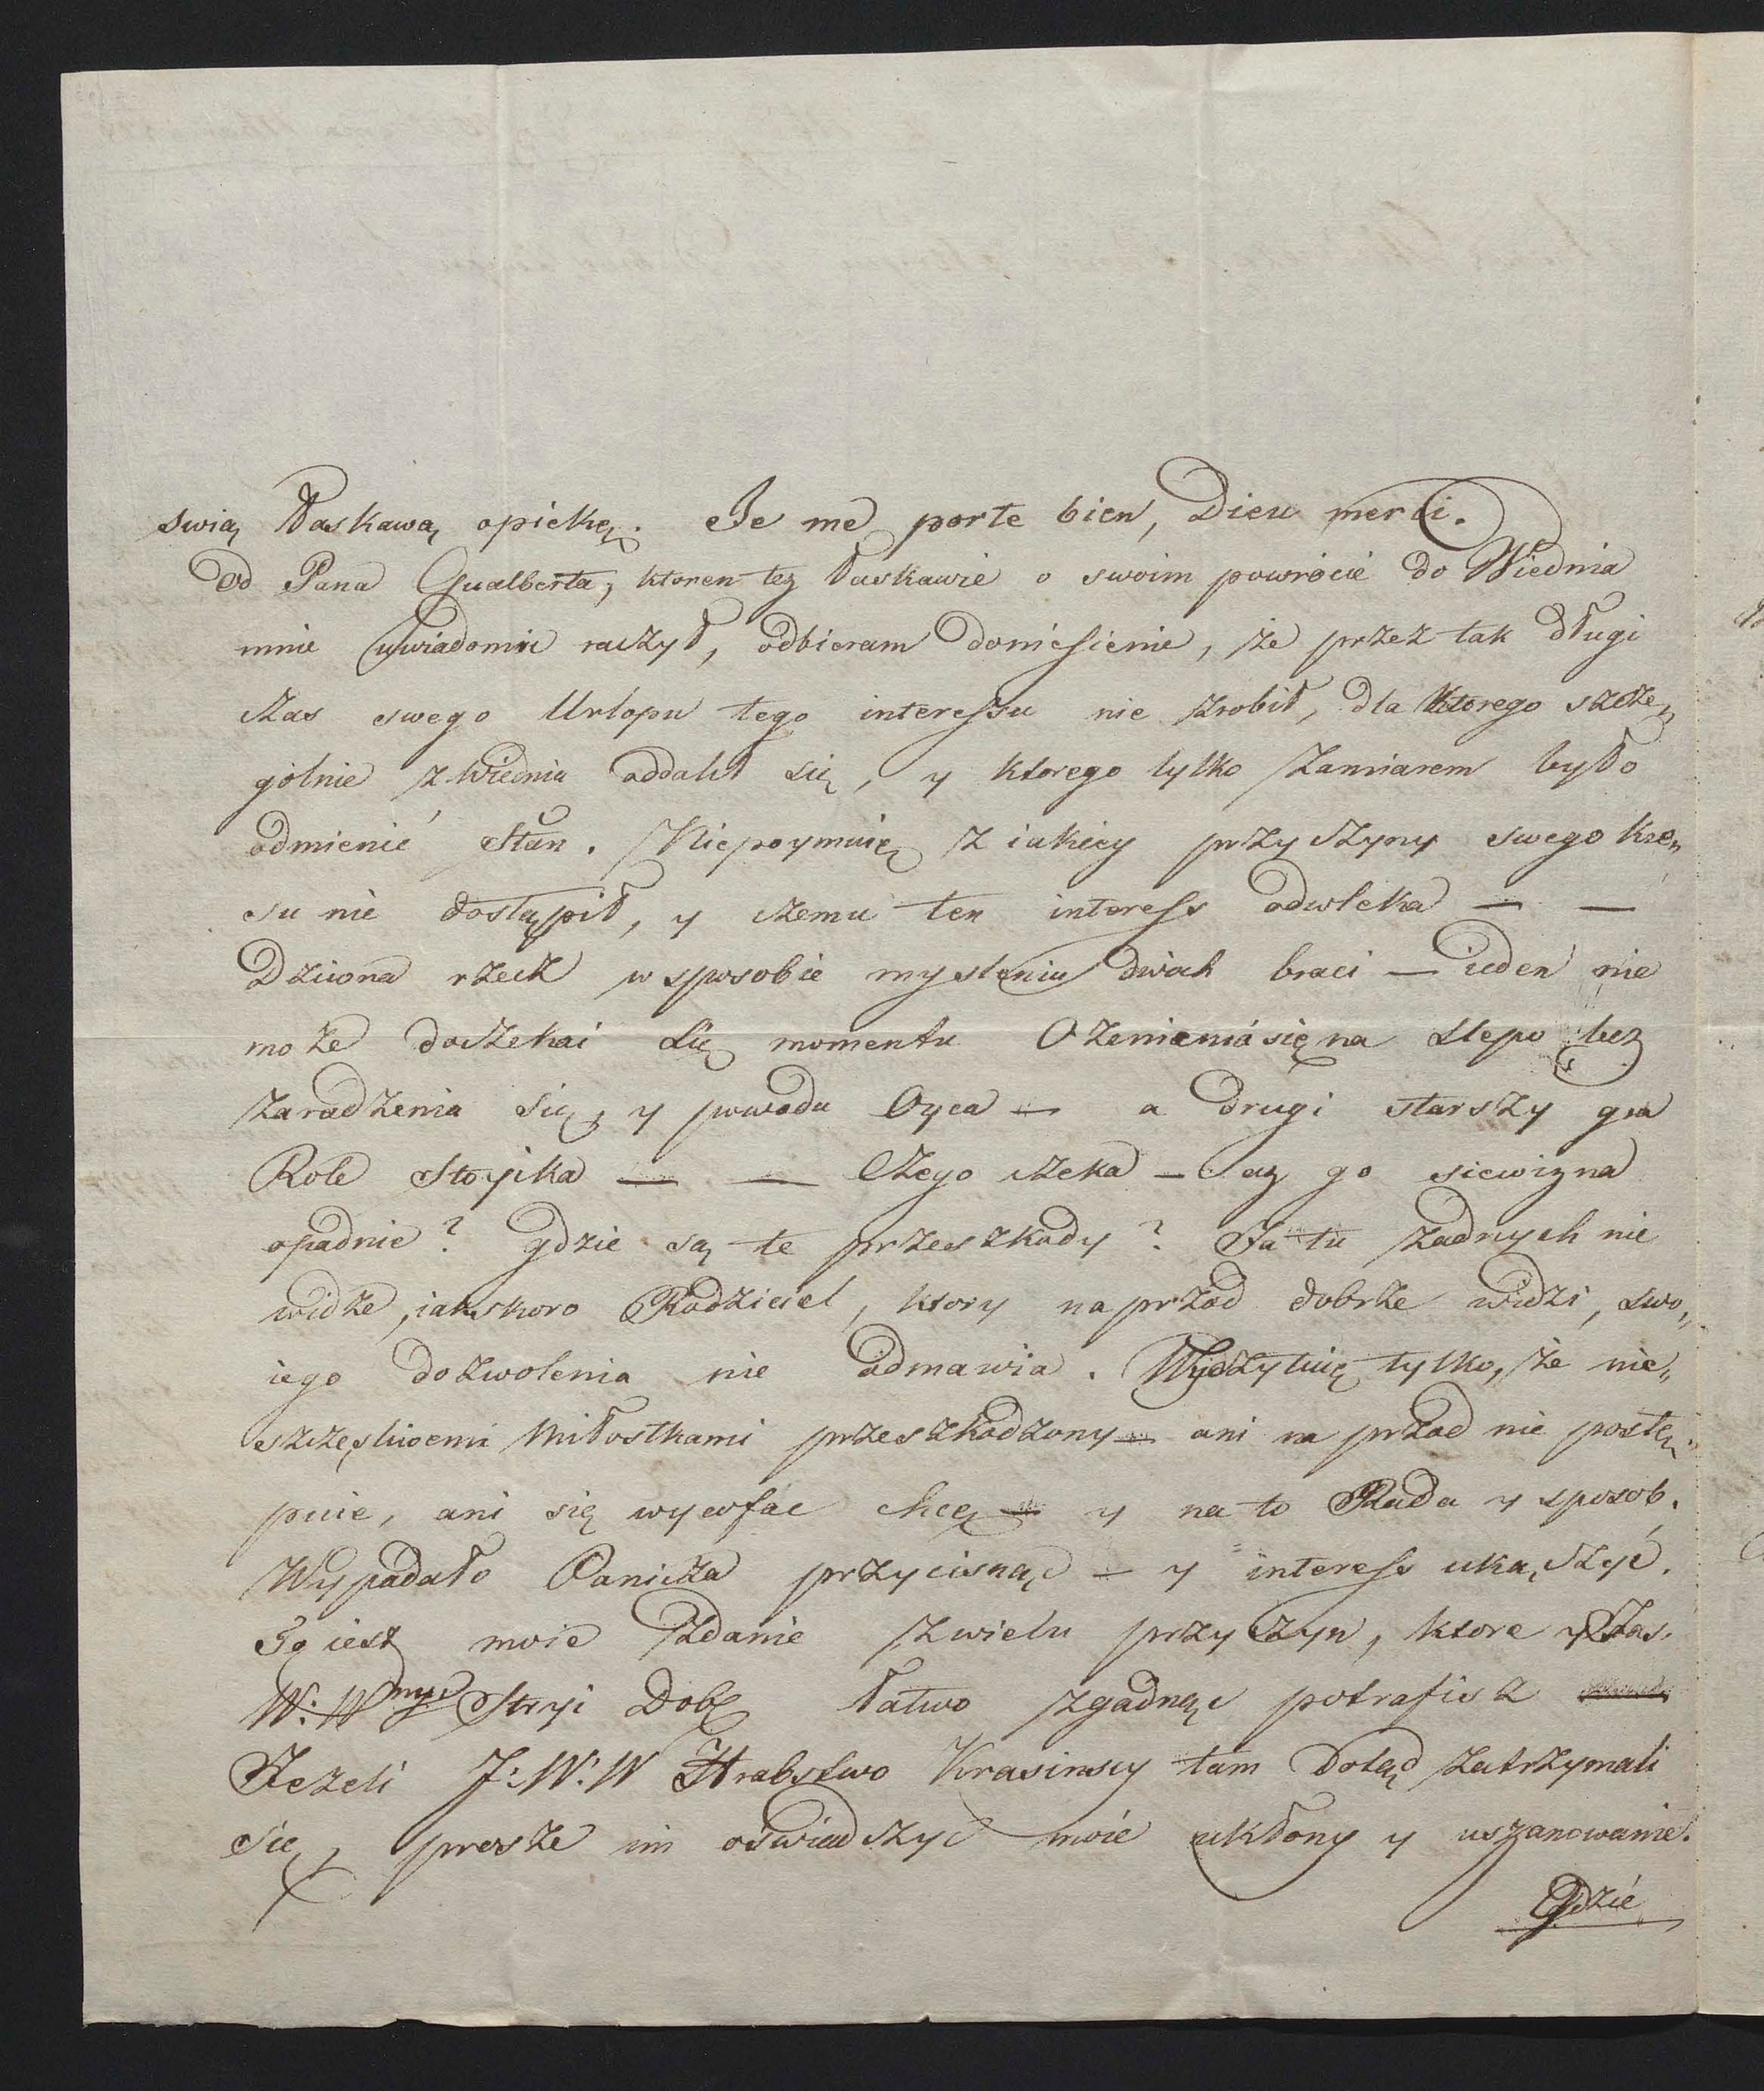 swią łaskawą opiekę. Je me porte bien, Dieu merci.
Od Pana Gualberta, ktoren tez łaskawie o swoim powròcie do Wiednia
mnie uwiadomic raczył, odbieram doniesienie, że przez tak długi
czas swego Urlopu tego interessu nie zrobił, dla ktorego szcze„
gòlnie z Wiednia oddalił się, y ktorego tylko zamiarem było
odmienić Stan. Niepoymuię z iakiey przyczyny swego kre„
su nie dostąpił, y czemu ten interess odwleka — —
Dziwna rzecz w sposobie myslenia dwoch braci — ieden nie
może doczekai się momentu Ozenienia się na slepo bez
zaradzenia się, y powodu Oyca — a drugi starszy gra
Role Stoyika — — Czego czeka — az go siewizna
opadnie? gdzie są te przeszkody? Ja tu żadnych nie
widze, iakskoro Rodziciel, ktory naprzod dobrze widzi, swo„
iego dozwolenia nie odmawia. Wyczytuię tylko, że nie„
szczęsliwemi Miłostkami przeszkodzony — ani na przod nie postę„
puie, ani się wycofac chcę — y na to Rada y sposob.
Wypadało Panicza przycisnąc — y interess ukączyć.
To iest moie zdanie z wielu przyczyn, ktore y Jas.
W: W Stryi Dob łatwo zgadnąc potrafisz
Jeżeli J: W: W Hrabstwo Krasinscy tam Dotąd zatrzymali
się, prosze im oświadczyc moie ukłony y uszanowanie.
Gdzié